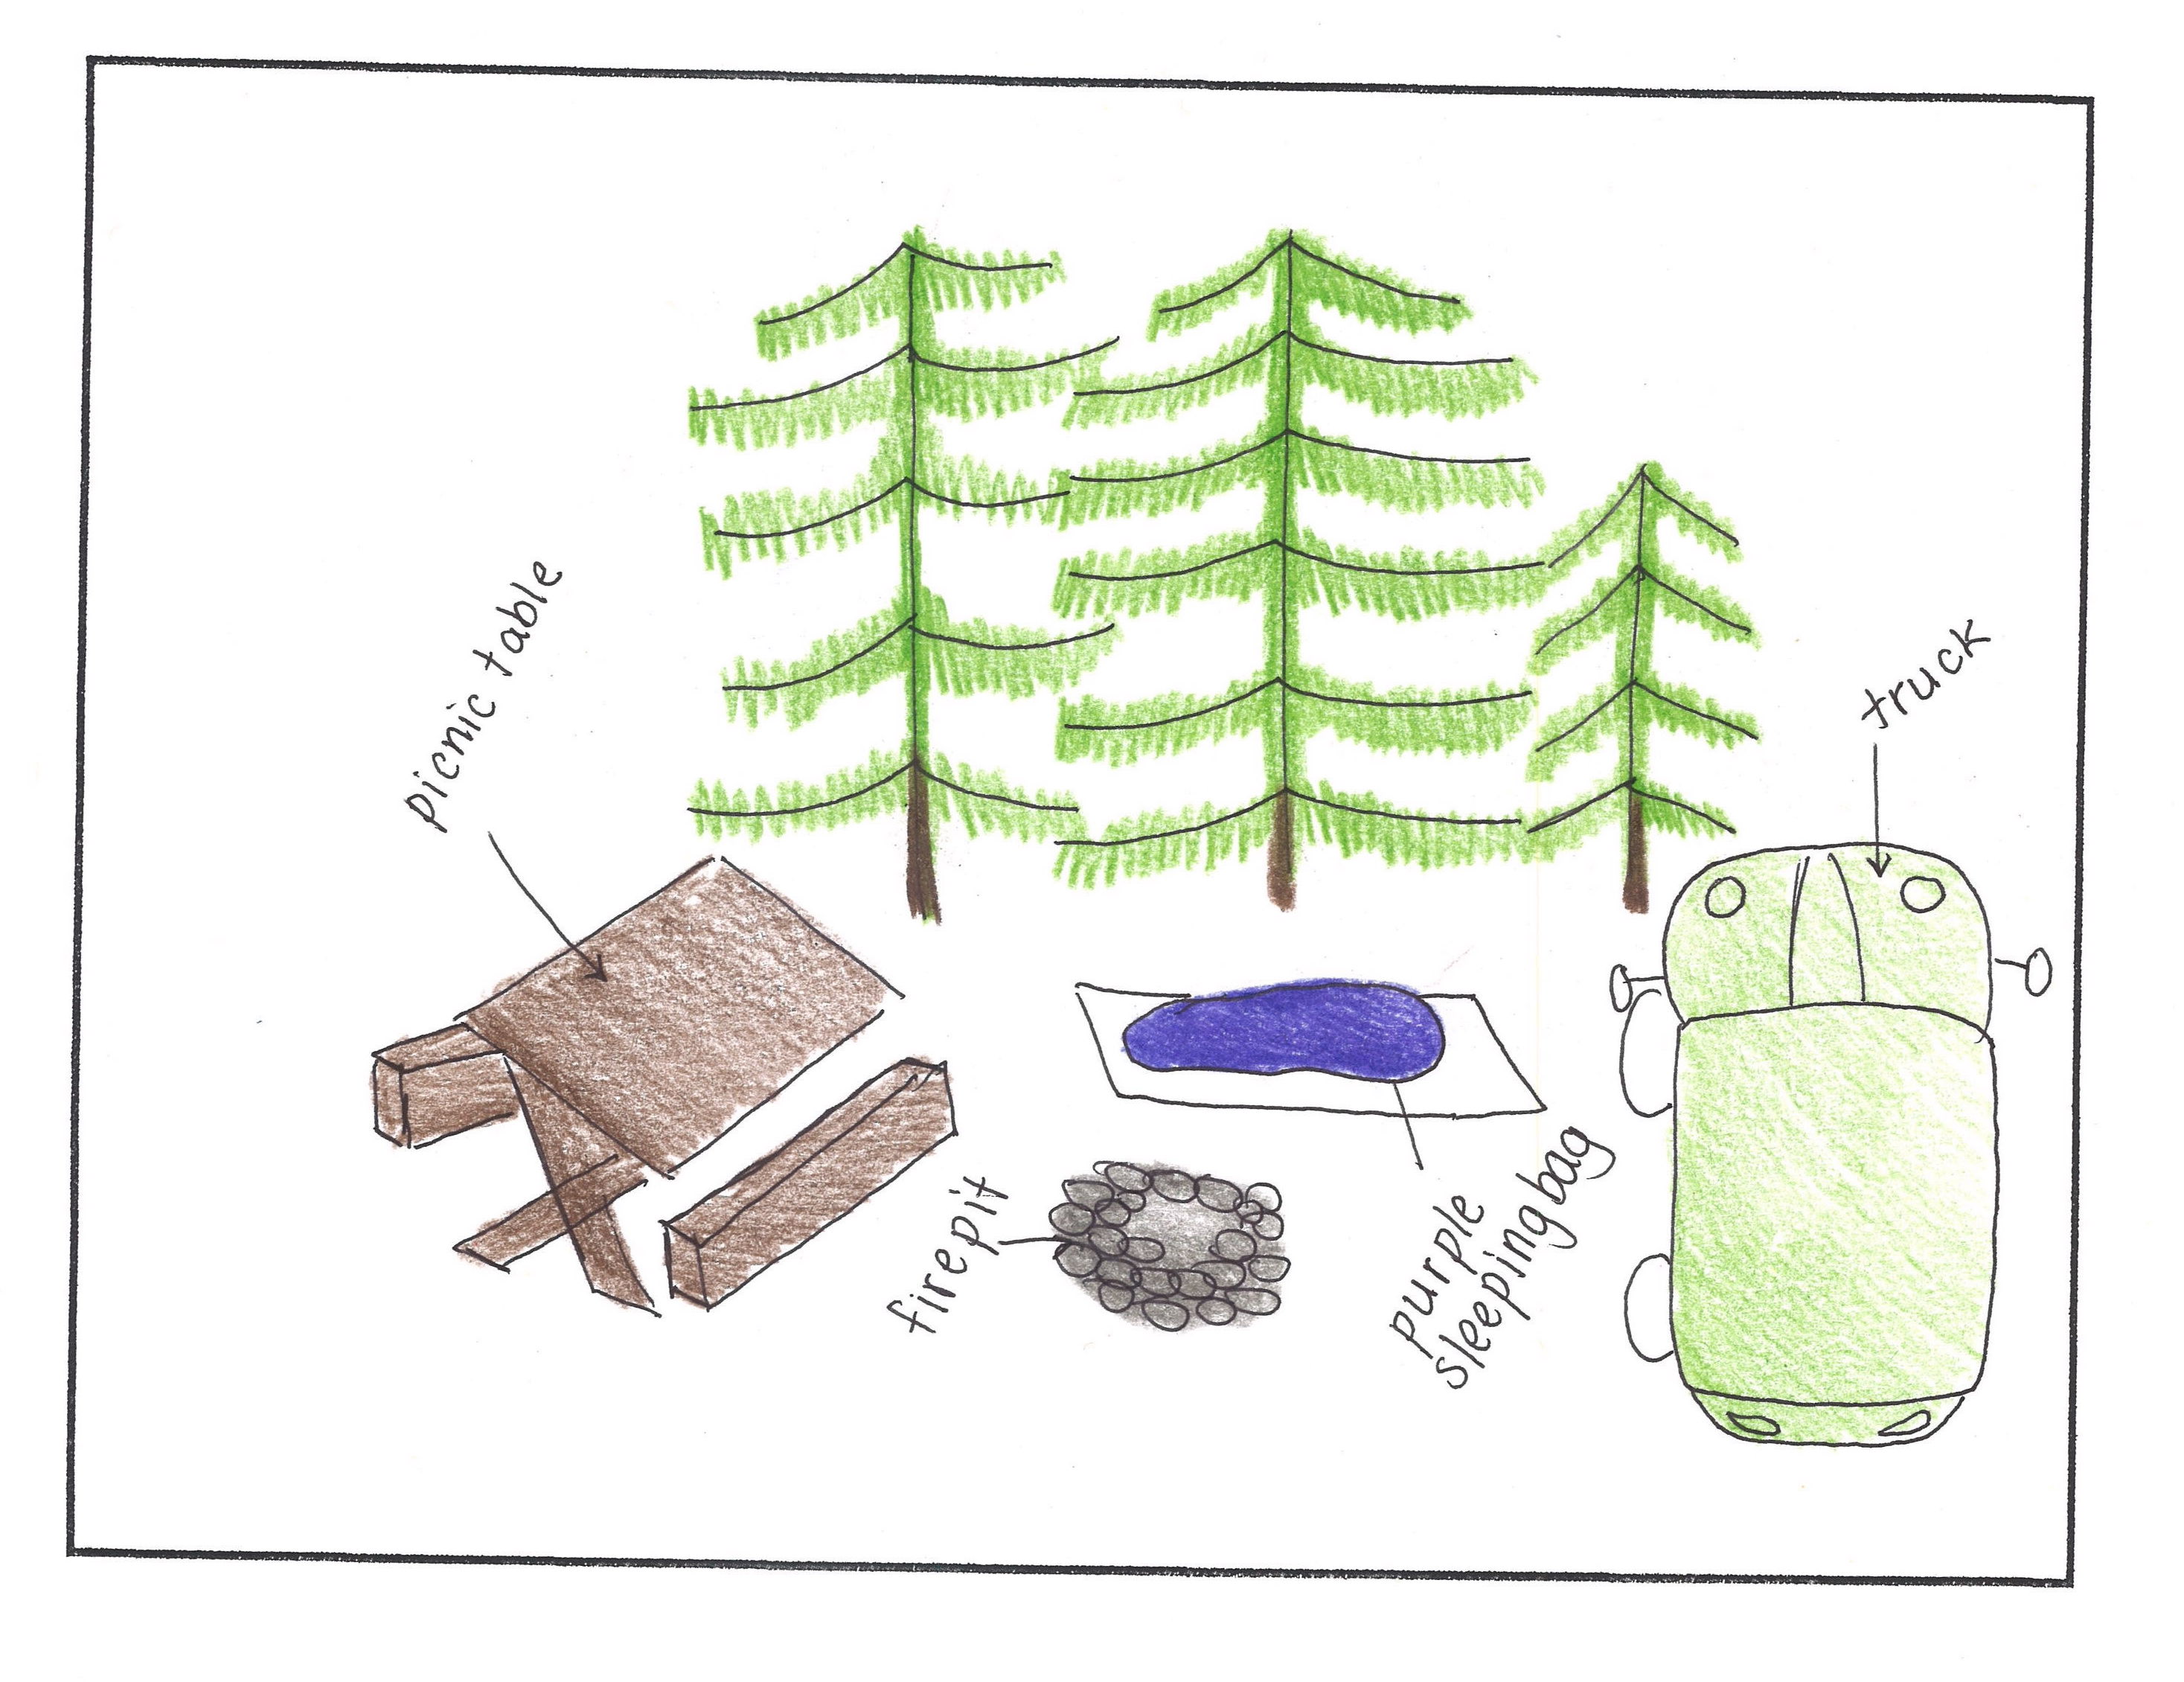 picnic table
truck
firepit
purple
sleeping bag